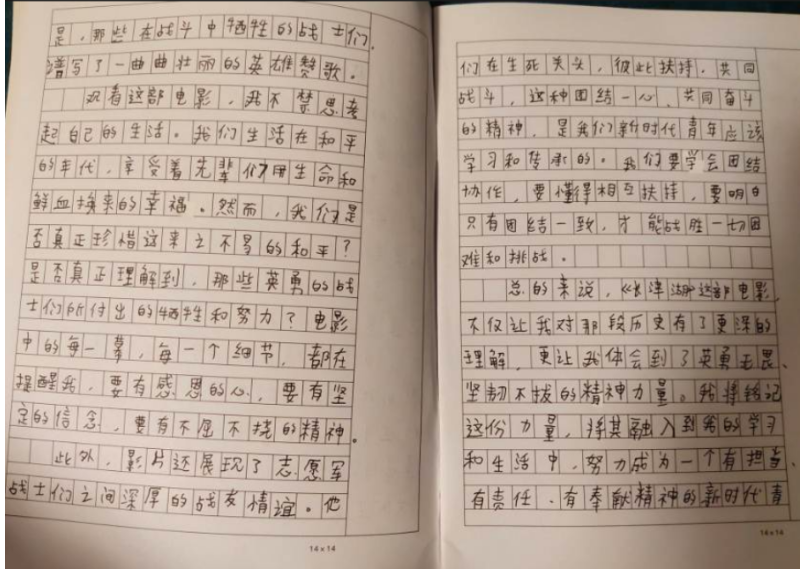 是，那些在战斗中牺牲的战士们，
谱写了一曲曲壮丽的英雄赞歌。
观看这部电影，我不禁思考
起自己的生活。我们生活在和平
的年代，享受着先辈们用生命和
鲜血换来的幸福。然而，我们是
否真正珍惜这来之不易的和平？
是否真正理解到，那些英勇的战
士们所付出的牺牲和努力？电影
中的每一幕，每一个细节，都在
提醒我，要有感恩的心，要有坚
定的信念，要有不屈不挠的精神。
此外，影片还展现了志愿军
战士们之间深厚的战友情谊。他
14×14
们在生死关头，彼此扶持，共同
战斗，这种团结一心、共同奋斗
的精神，是我们新时代青年应该
学习和传承的。我们要学会团结
协作，要懂得相互扶持，要明白
只有团结一致，才能战胜一切困
难和挑战。
总的来说，《长津湖》这部电影，
不仅让我对那段历史有了更深的
理解，更让我体会到了英勇无畏、
坚韧不拔的精神力量。我将铭记
这份力量，将其融入到我的学习
和生活中，努力成为一个有担当、
有责任、有奉献精神的新时代青
14×14